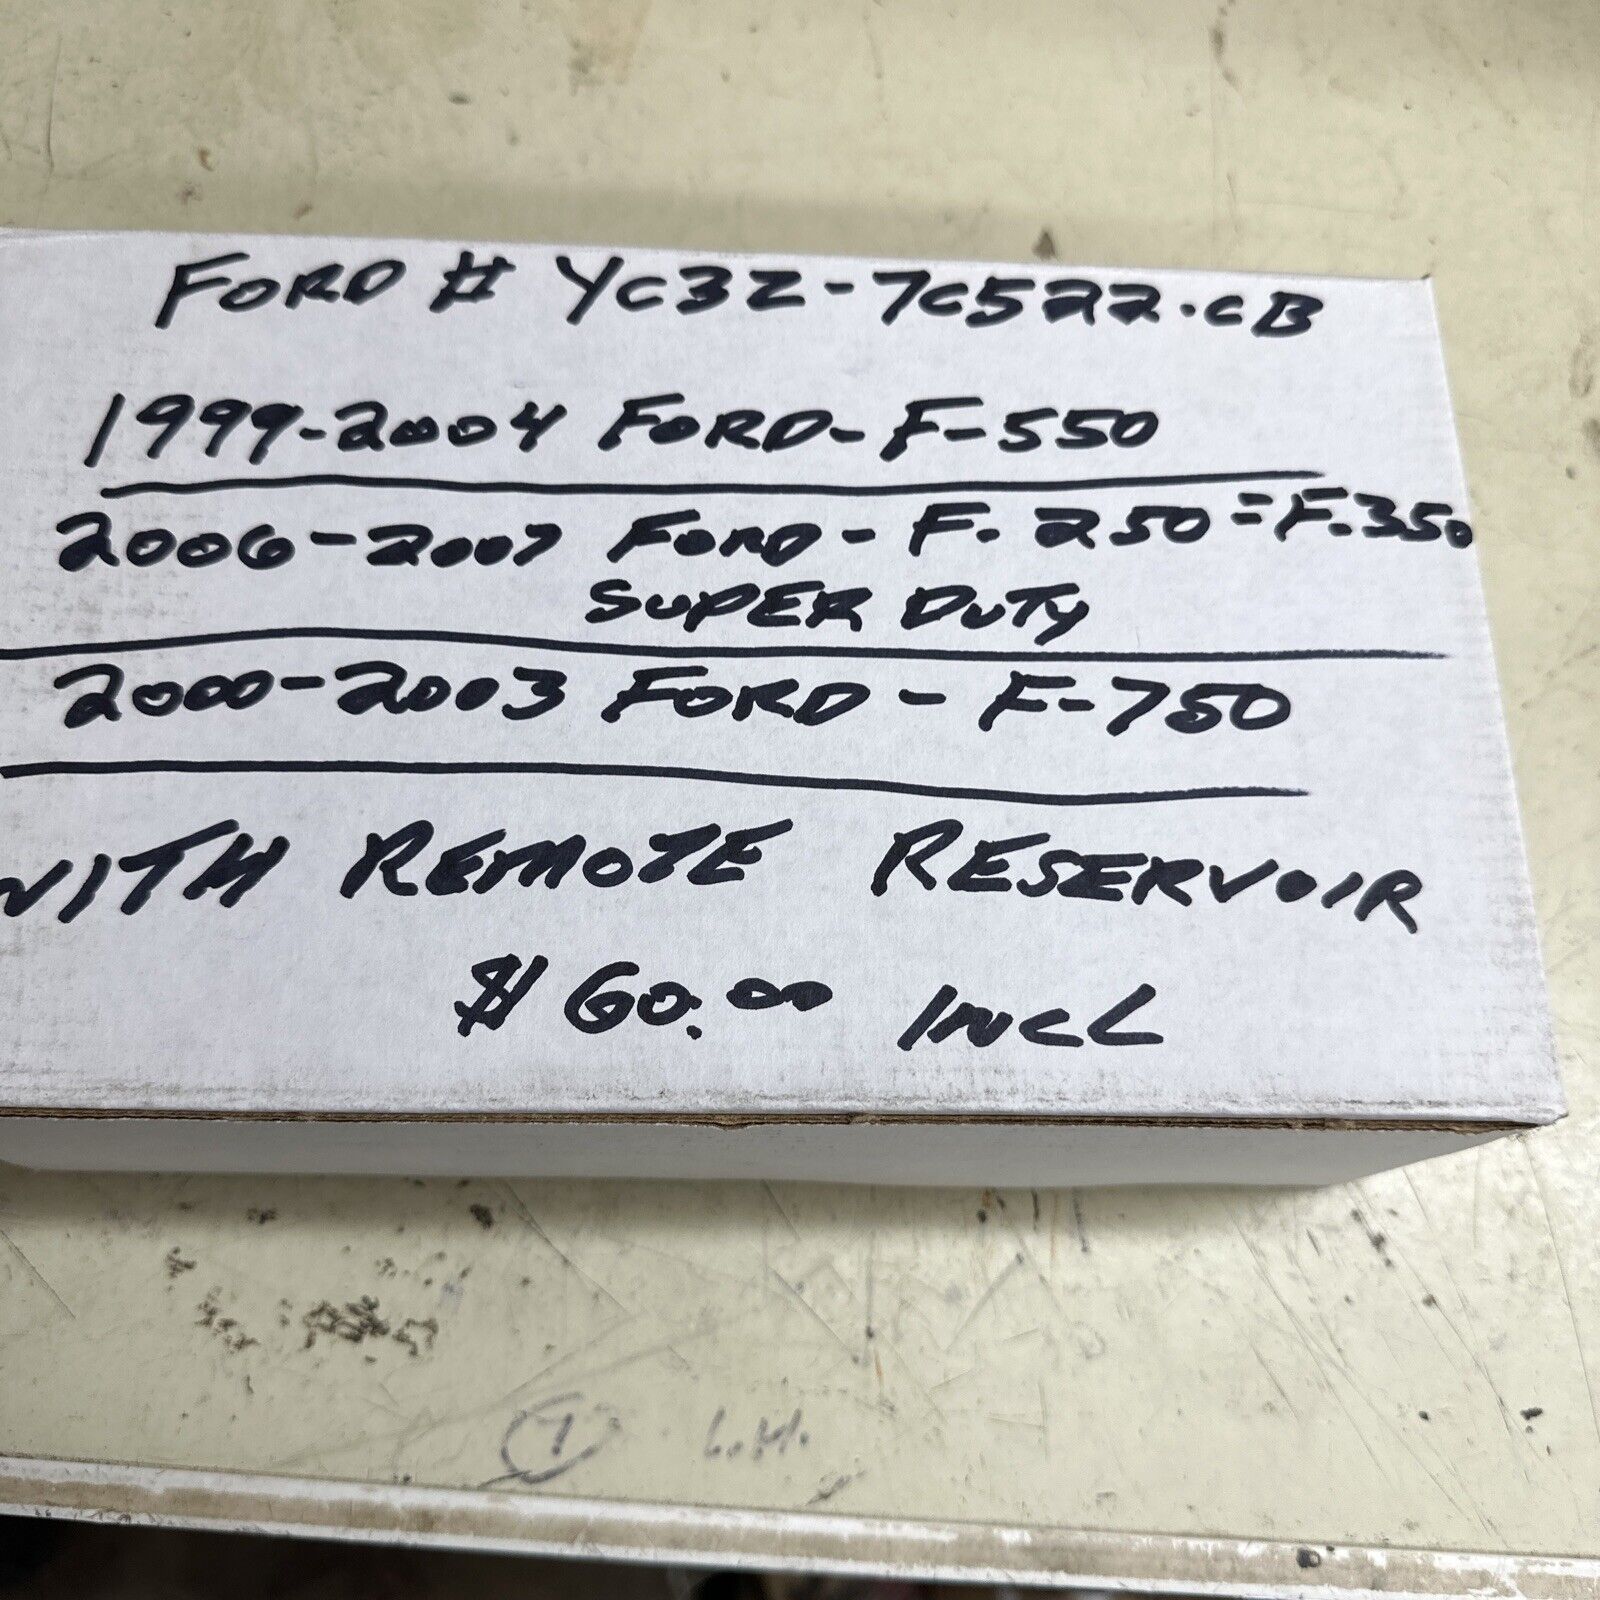 FORD # YC3Z-7C522.CB
1999-2004 FORD-F-550
2006-2007 FORD-F.250=F.350
SUPER DUTY
2000-2003 FORD-F-750
WITH REMOTE RESERVOIR
$60.00 INCL
7